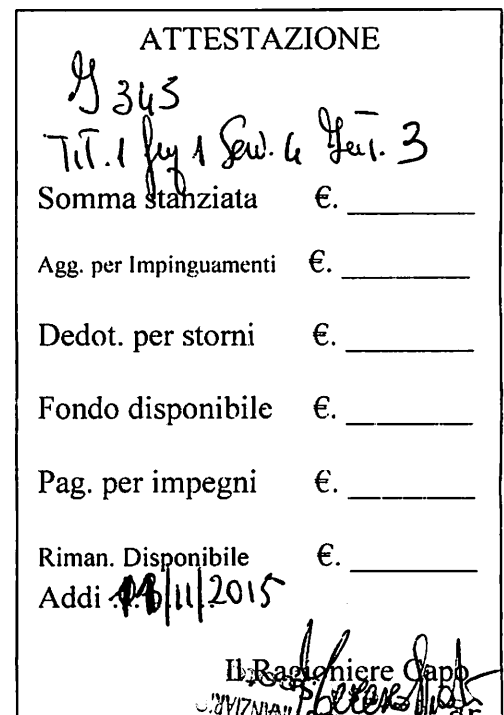 ATTESTAZIONE
345
TIT. 1 1 Serv. 4 Int. 3
Somma stanziata €. ________
Agg. per Impinguamenti €. ________
Dedot. per storni €. ________
Fondo disponibile €. ________
Pag. per impegni €. ________
Riman. Disponibile €. ________
Addi /11/2015
Il Ragioniere Capo